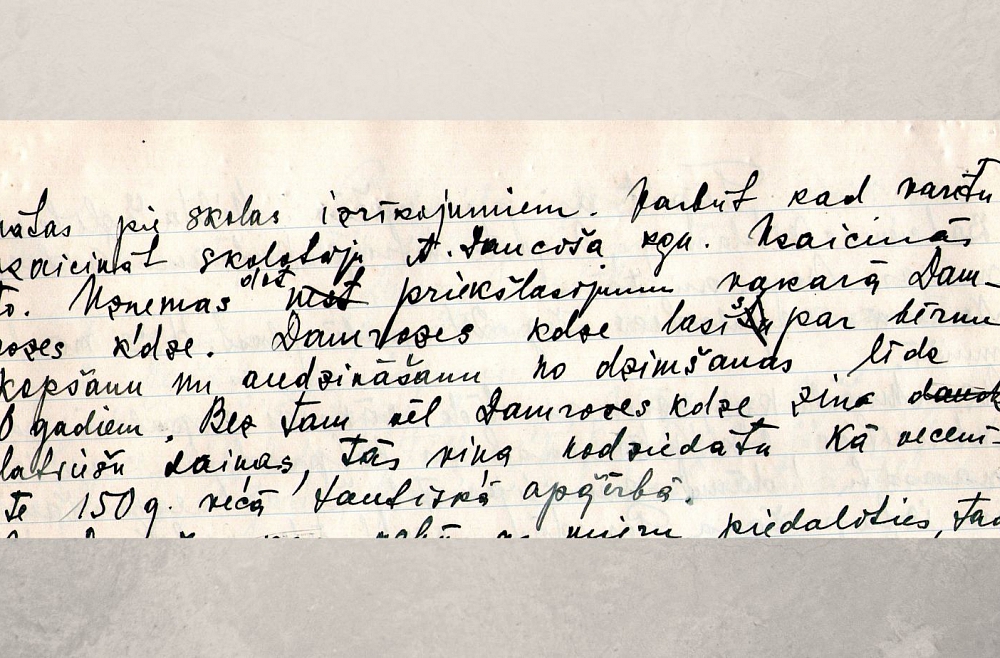 pie skolas izrīkojumiem. Varbūt kad varētu
uzaicināt skolotāju A. Dancoša kgu. Uzaicinās
to. Uzņemas dot priekšlasījumu vakarā Dam-
rozes k'dze. Damrozes kdze lasīs par bērnu
kopšanu un audzināšanu no dzimšanas līdz
gadiem. Bez tam vēl Damrozes kdze zina
dainas, tās viņa nodziedātu kā vecenī-
te 150 g. vecā tautiskā apģērbā.
piedalīties,